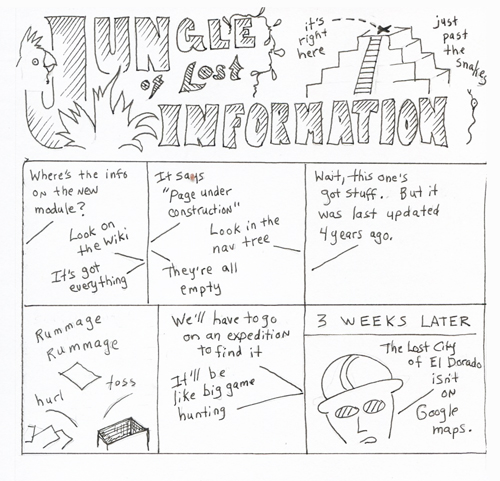 JUNGLE
of Lost
INFORMATION
it's
right
here
just
past
the
snakes
Where's the info
on the new
module?
Look on
the wiki
It's got
everything
It says
"Page under
construction"
Look in the
nav tree
They're all
empty
Wait, this one's
got stuff. But it
was last updated
4 years ago.
Rummage
Rummage
hurl
toss
We'll have to go
on an expedition
to find it
It'll be
like big game
hunting
3 WEEKS LATER
The Lost City
of El Dorado
isn't
on
Google
maps.